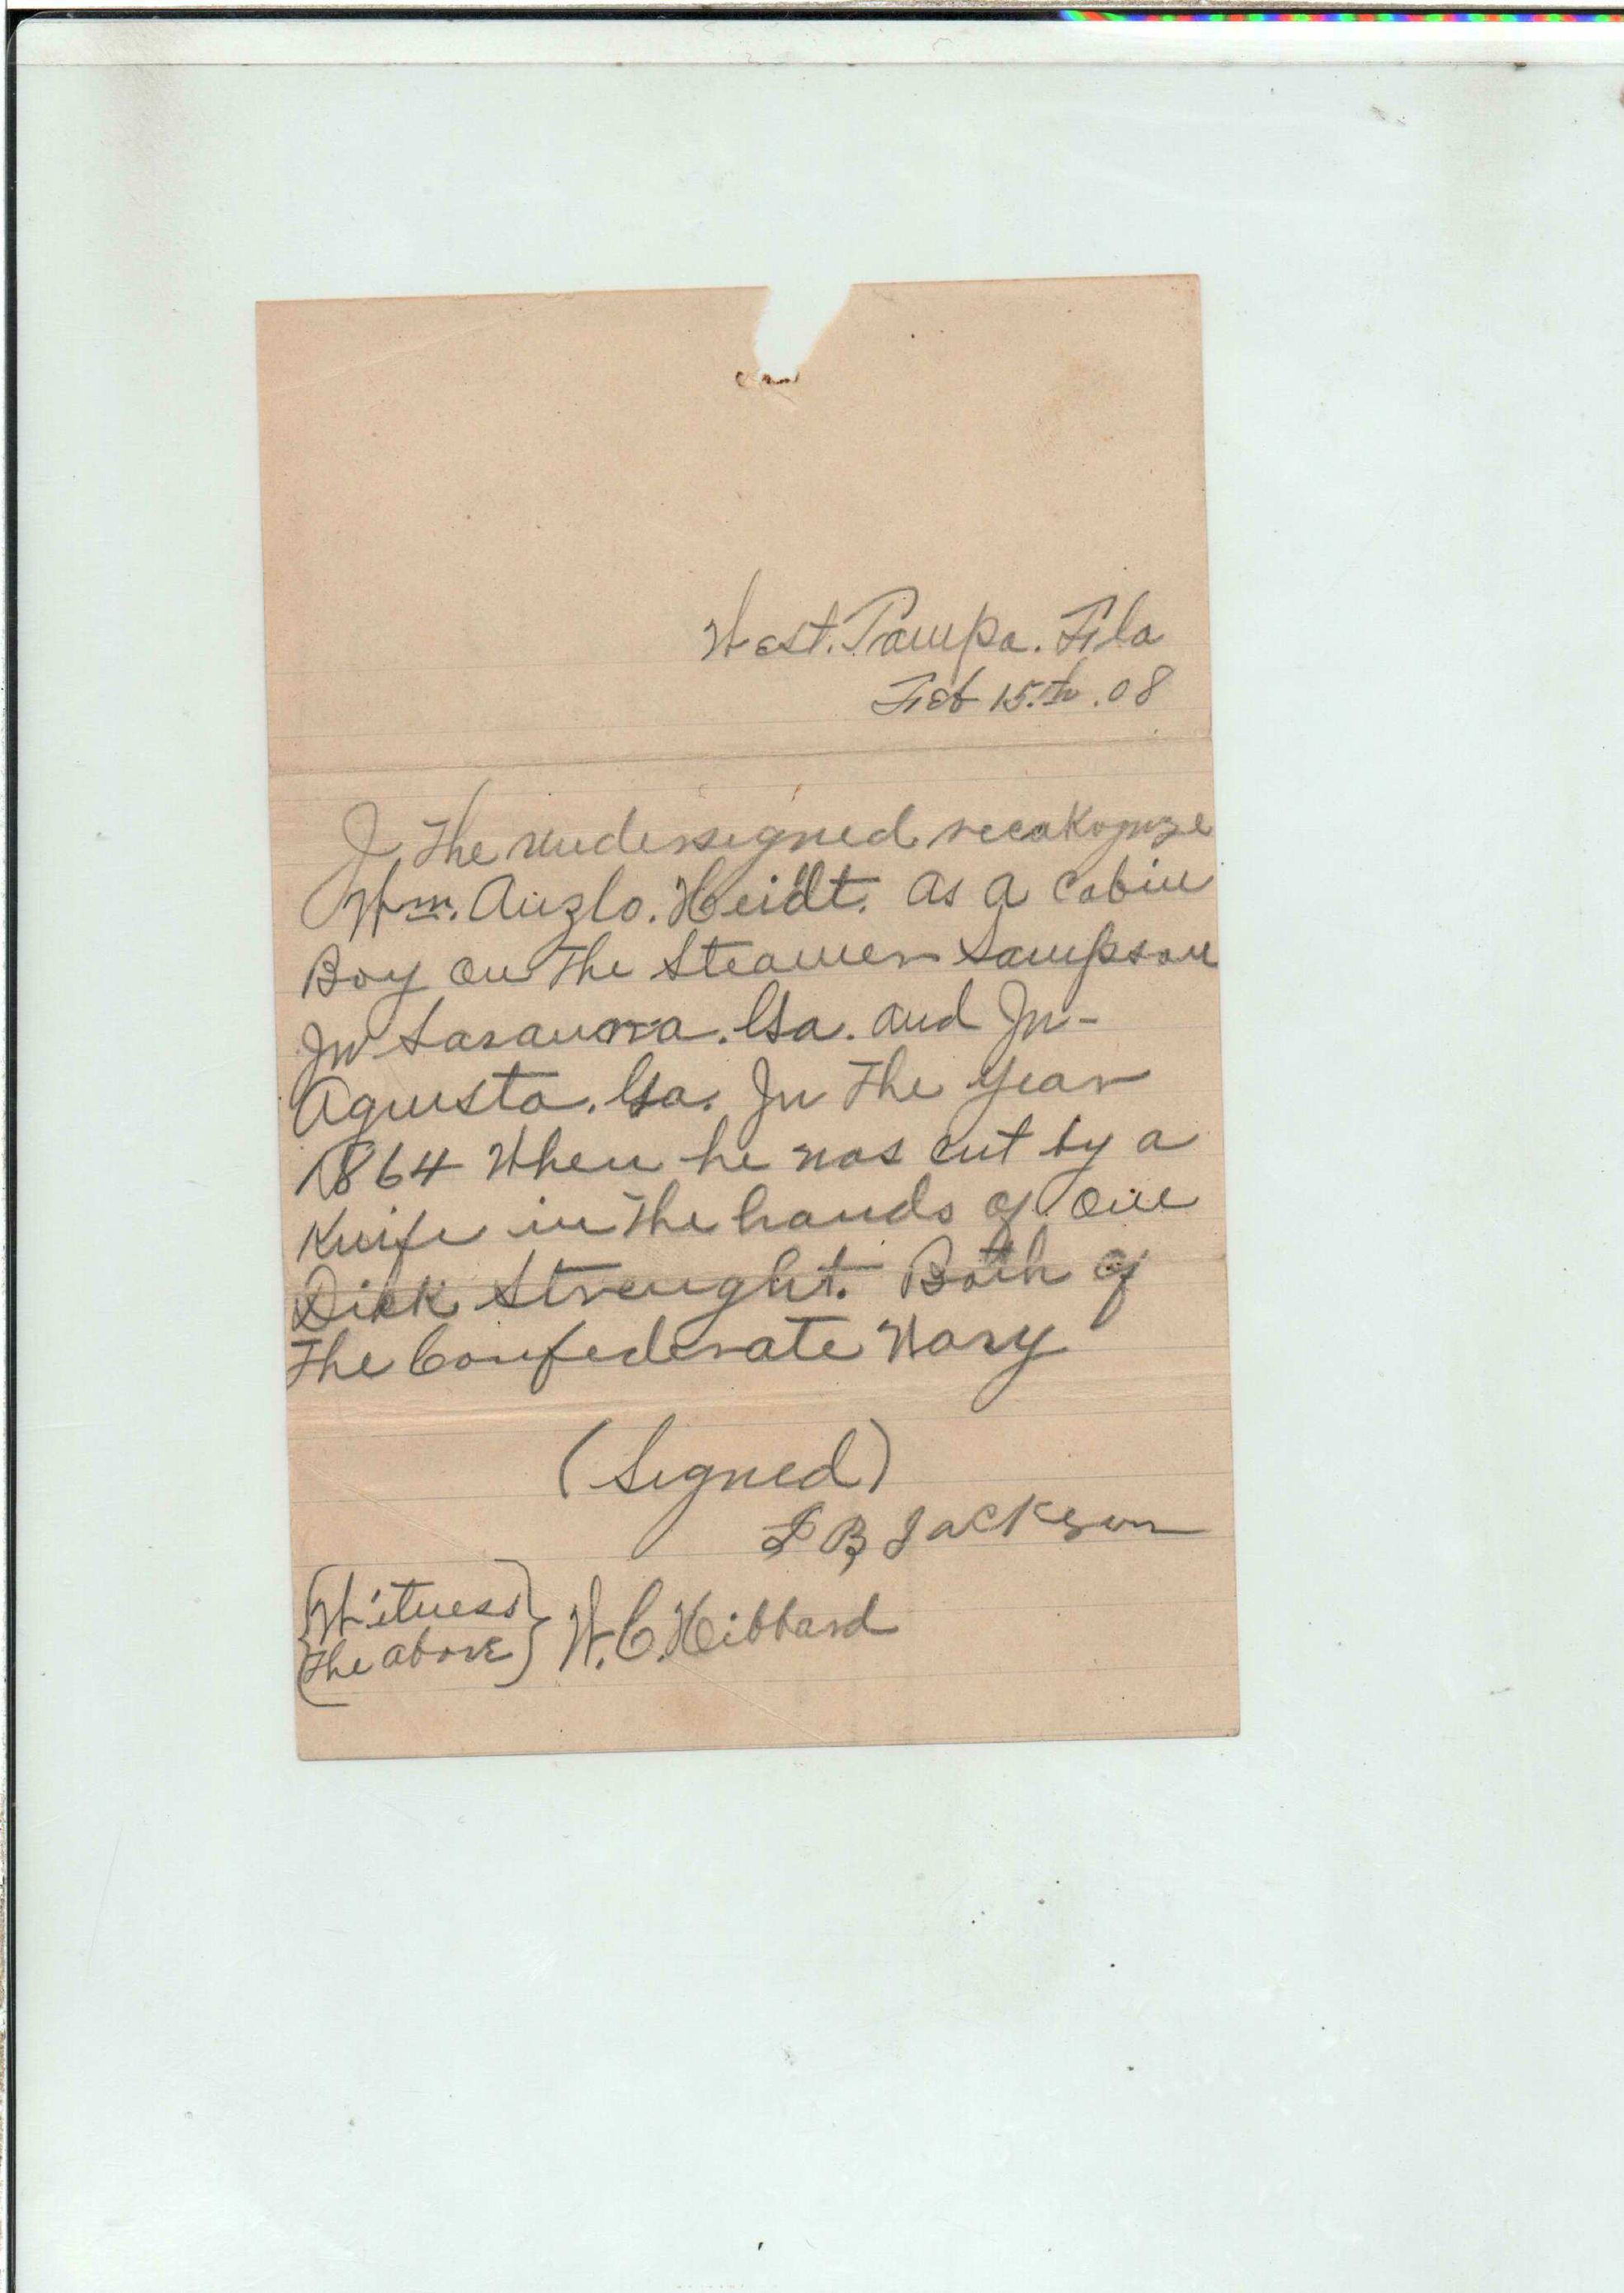 West. Tampa. Fla
Feb 15.th. 08
I, the undersigned recakognze
Wm. Auzlo. Heidt. as a cabin
Boy on the Steamer Sampson
In Savanna. Ga. and In-
Agusta. Ga. In the year
1864 When he was cut by a
Knife in the hands of one
Dick Strenght. Both of
the Confederate Navy
(Signed)
B Jackson
Witness
the above W. C. Hibbard